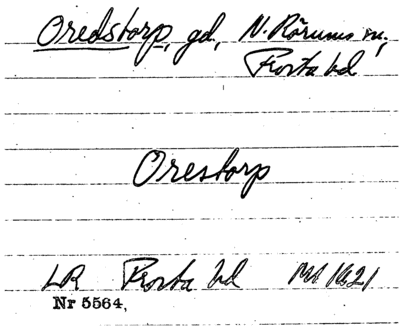 Oredstorp, gd, N. Rörums sn,
Frosta hd
Orestorp
LR Frosta hd Ms 1621
Nr 5564,